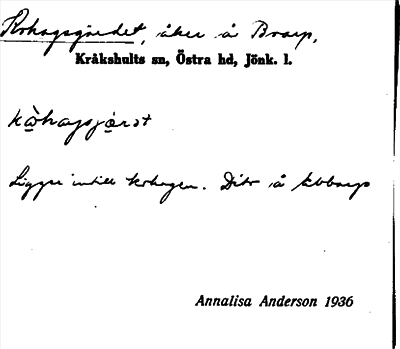 Kohagsgärdet, åker å Braarp,
Kråkshults sn, Östra hd, Jönk. l.
kòhagsjärət
Ligger intill kohagen. Ditr å
Annalisa Anderson 1936